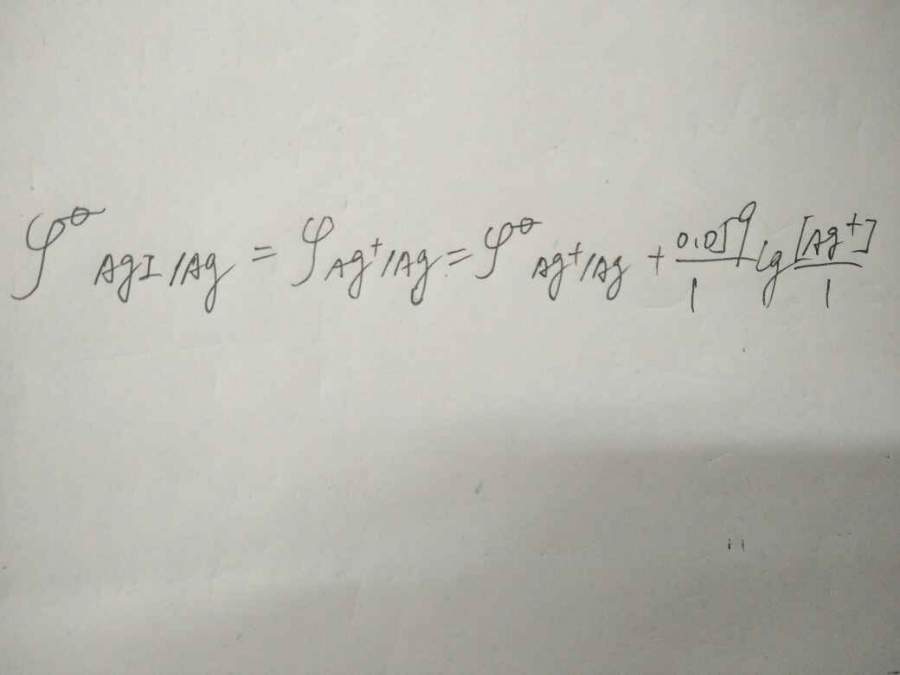 φ^θ AgI/Ag = φ Ag⁺/Ag = φ^θ Ag⁺/Ag + 0.059/1 lg [Ag⁺]/1